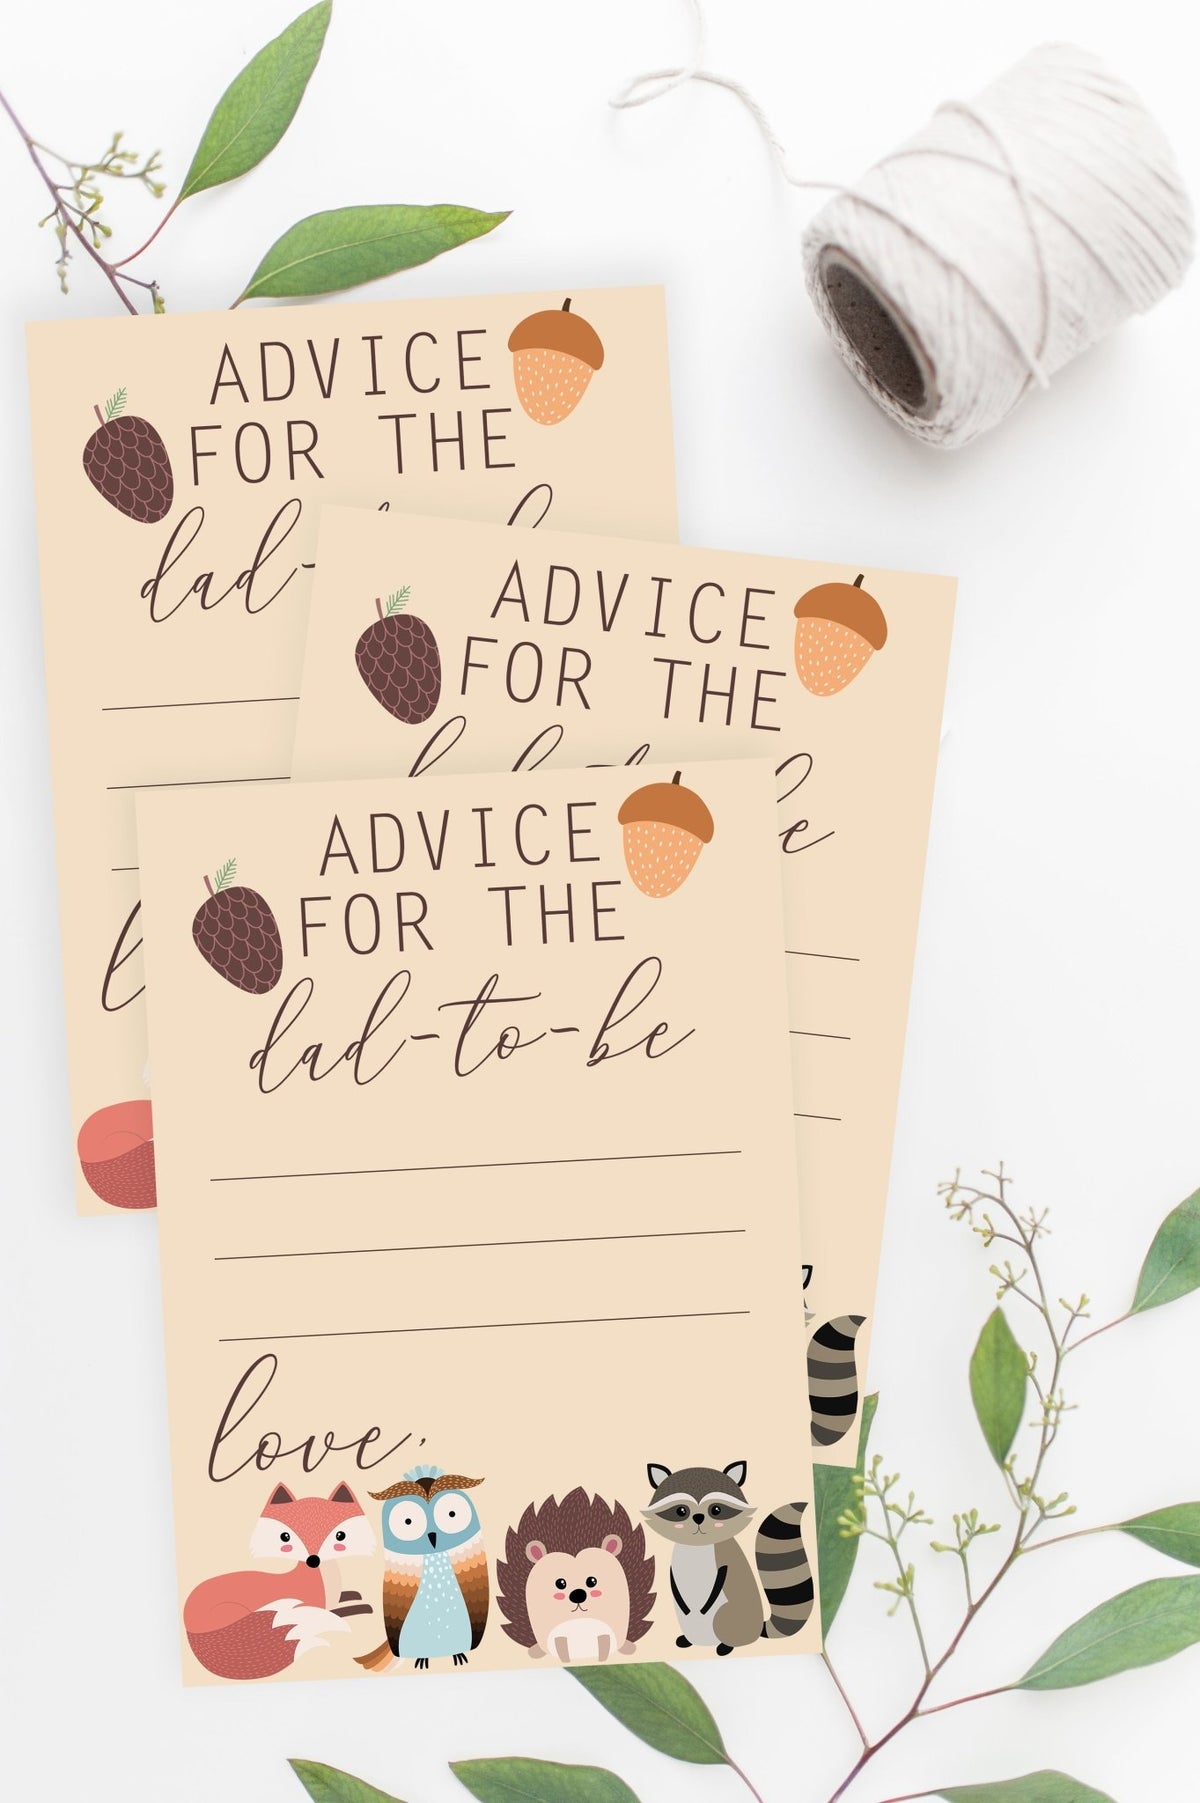 ADVICE
FOR THE
dad-
ADVICE
FOR THE
ADVICE
FOR THE
dad-to-be
love,